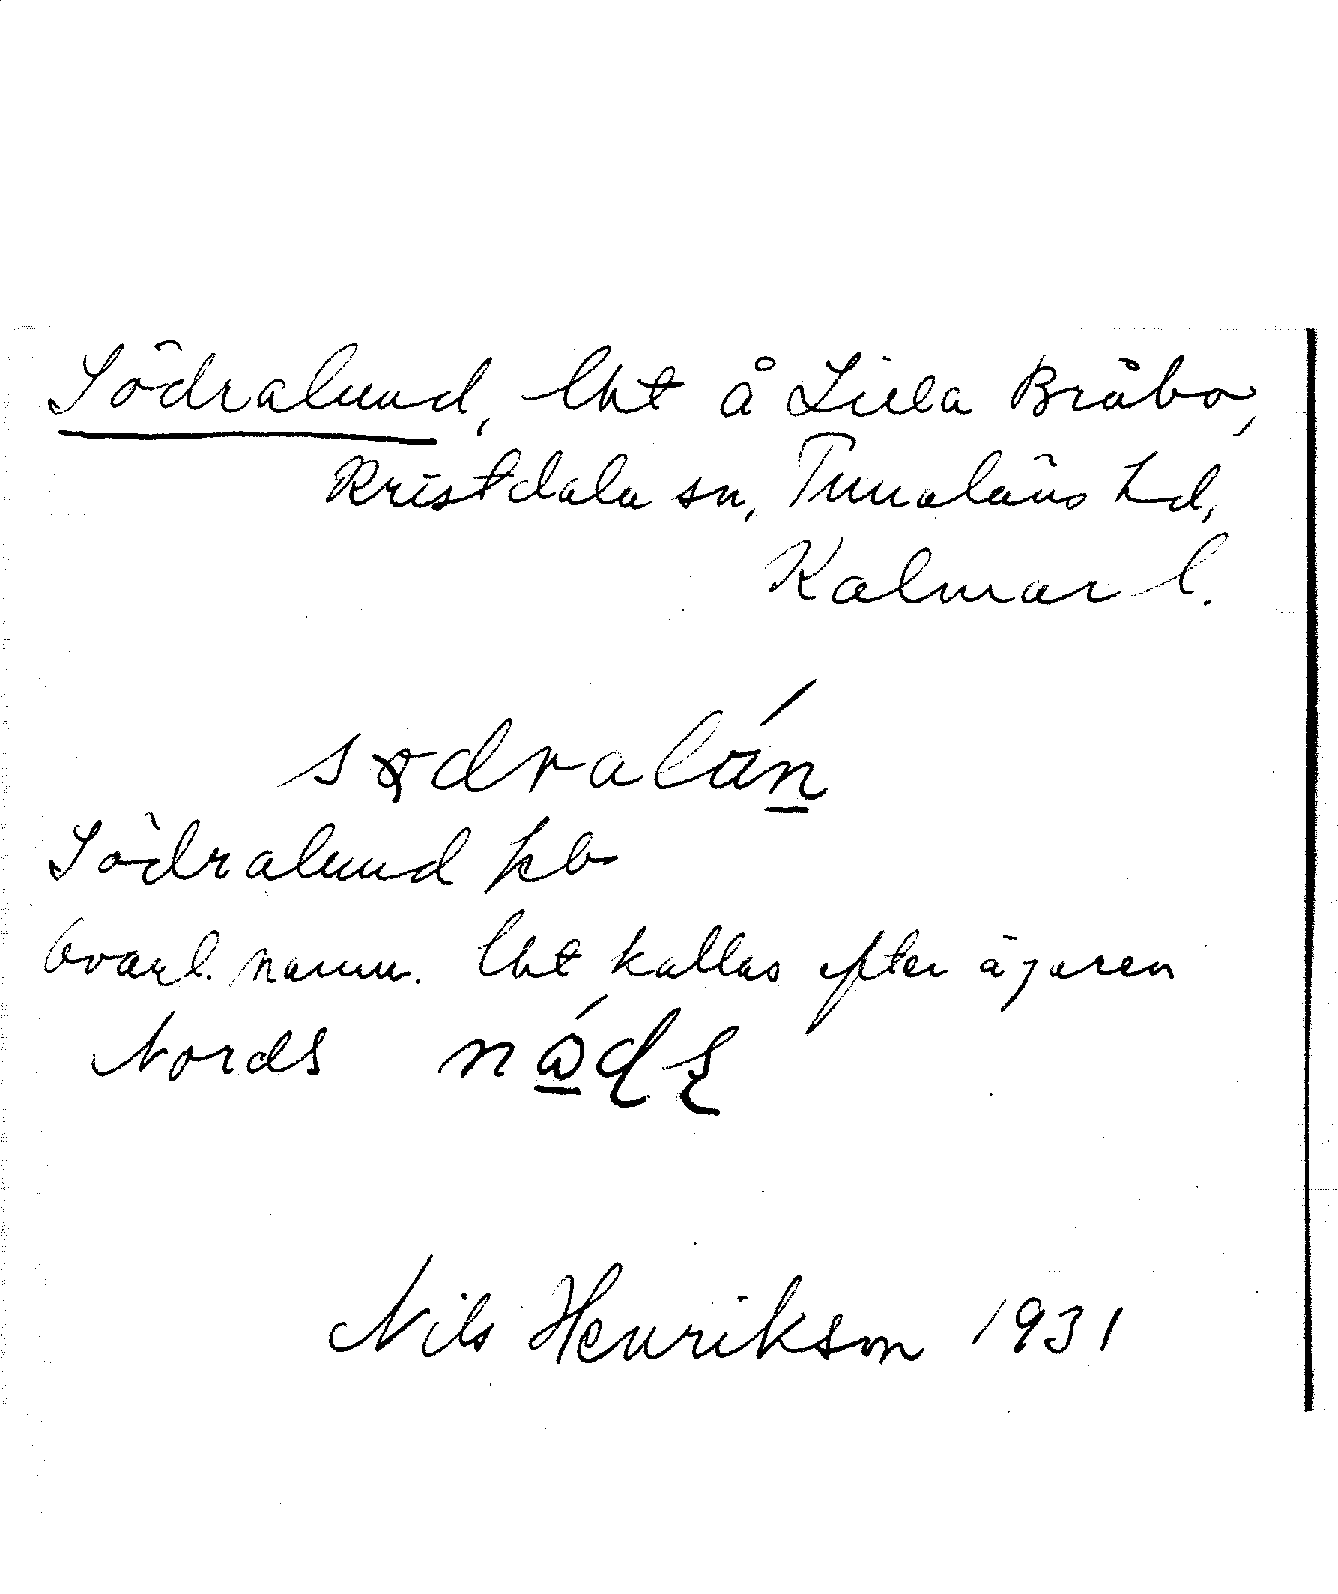 Södralund, lht å Lilla Bråbo,
Kristdala sn, Tunaläns hd,
Kalmar l.
sødralún
Södralund kb
Ovanl. namn. lht kallas efter ägaren
Nords
Nils Henrikson 1931